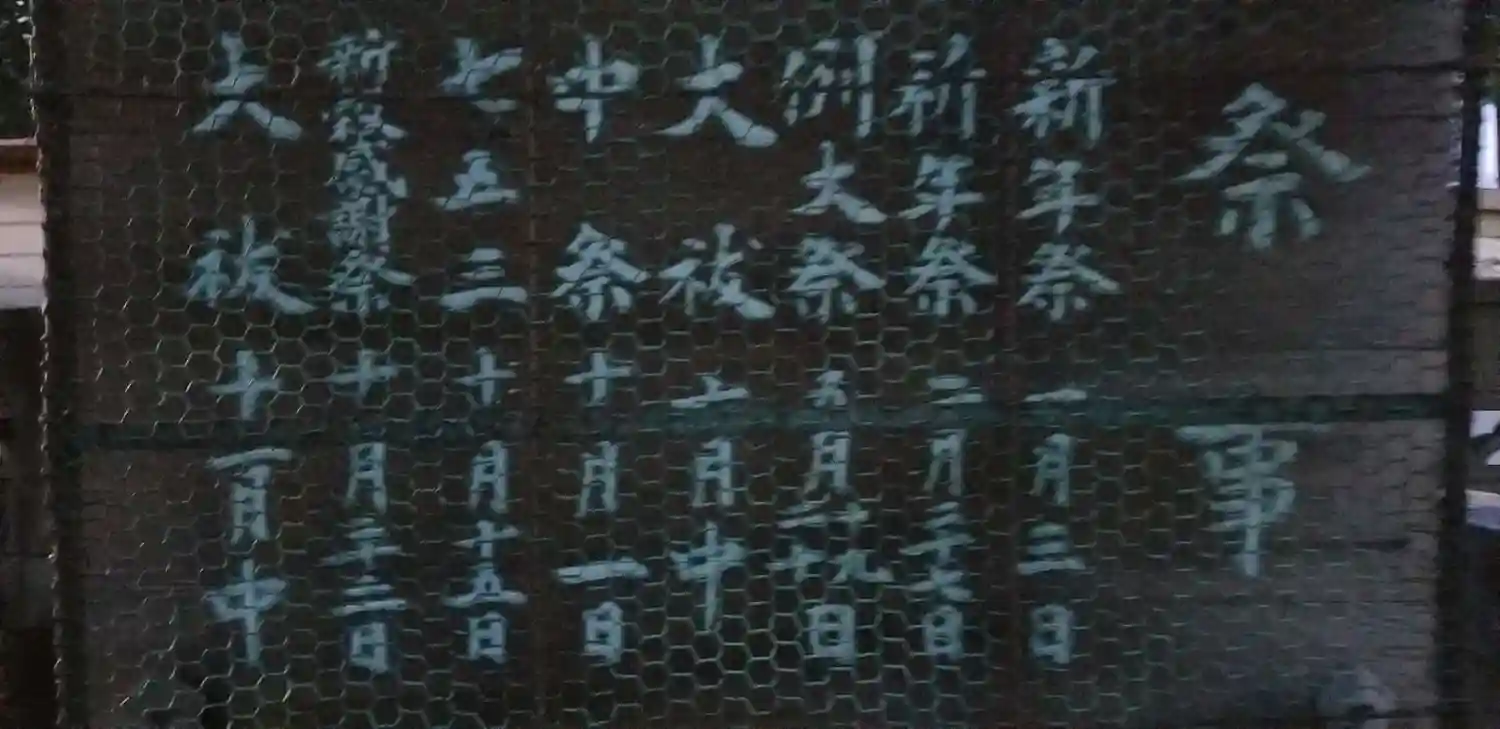 祭事
新年祭 一月三日
祈年祭 二月二十七日
例大祭 五月日
大祓 六月中
中祭 十月一日
七五三 十月十五日
新穀感謝祭 十月二十三日
大祓 十二月中